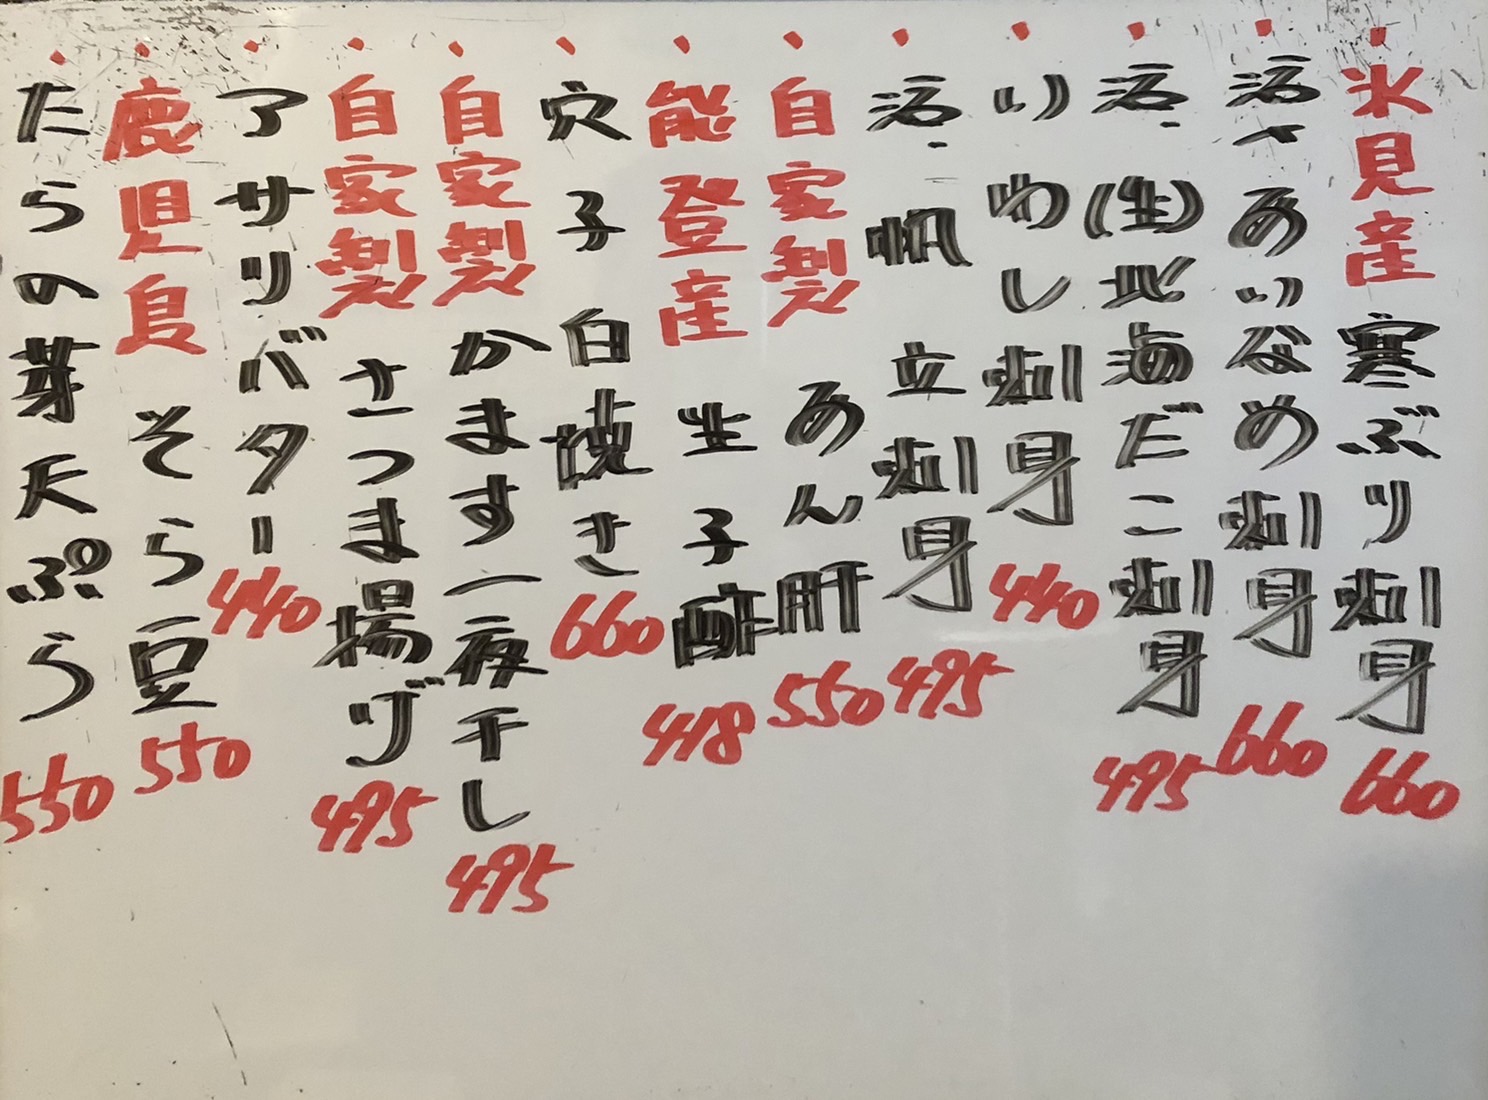 ・氷見産 寒ぶり刺身 660
・活〆 あいなめ刺身 660
・活・(生)北海だこ刺身 495
・いわし刺身 440
・活・帆立刺身 495
・自家製 あん肝 550
・能登産 生子酢 418
・穴子白焼き 660
・自家製 かます一夜干し 495
・自家製 さつま揚げ 495
・アサリバター 440
・鹿児島 そら豆 550
・たらの芽天ぷら 550